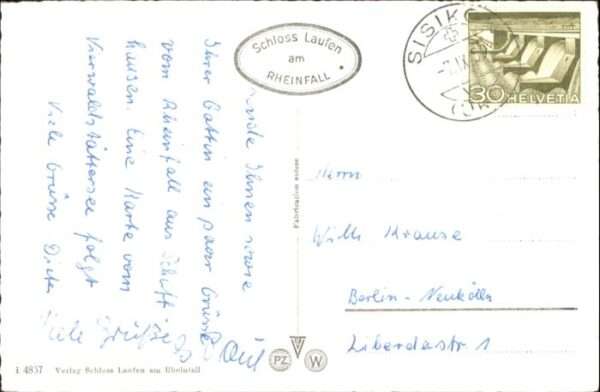 Sende Ihnen sowie
Ihrer Gattin ein paar Grüsse
vom Rheinfall aus Schaff-
hausen. Eine Karte vom
Vierwaldstättersee folgt
Viele Grüsse Dieter
Viele Grüsse
Schloss Laufen
am
RHEINFALL
SISIKON
30 HELVETIA
Fabrication suisse
Herrn
Willi Krause
Berlin-Neukölln
Liberdastr 1
PZ W
i 4857 Verlag Schloss Laufen am Rheinfall